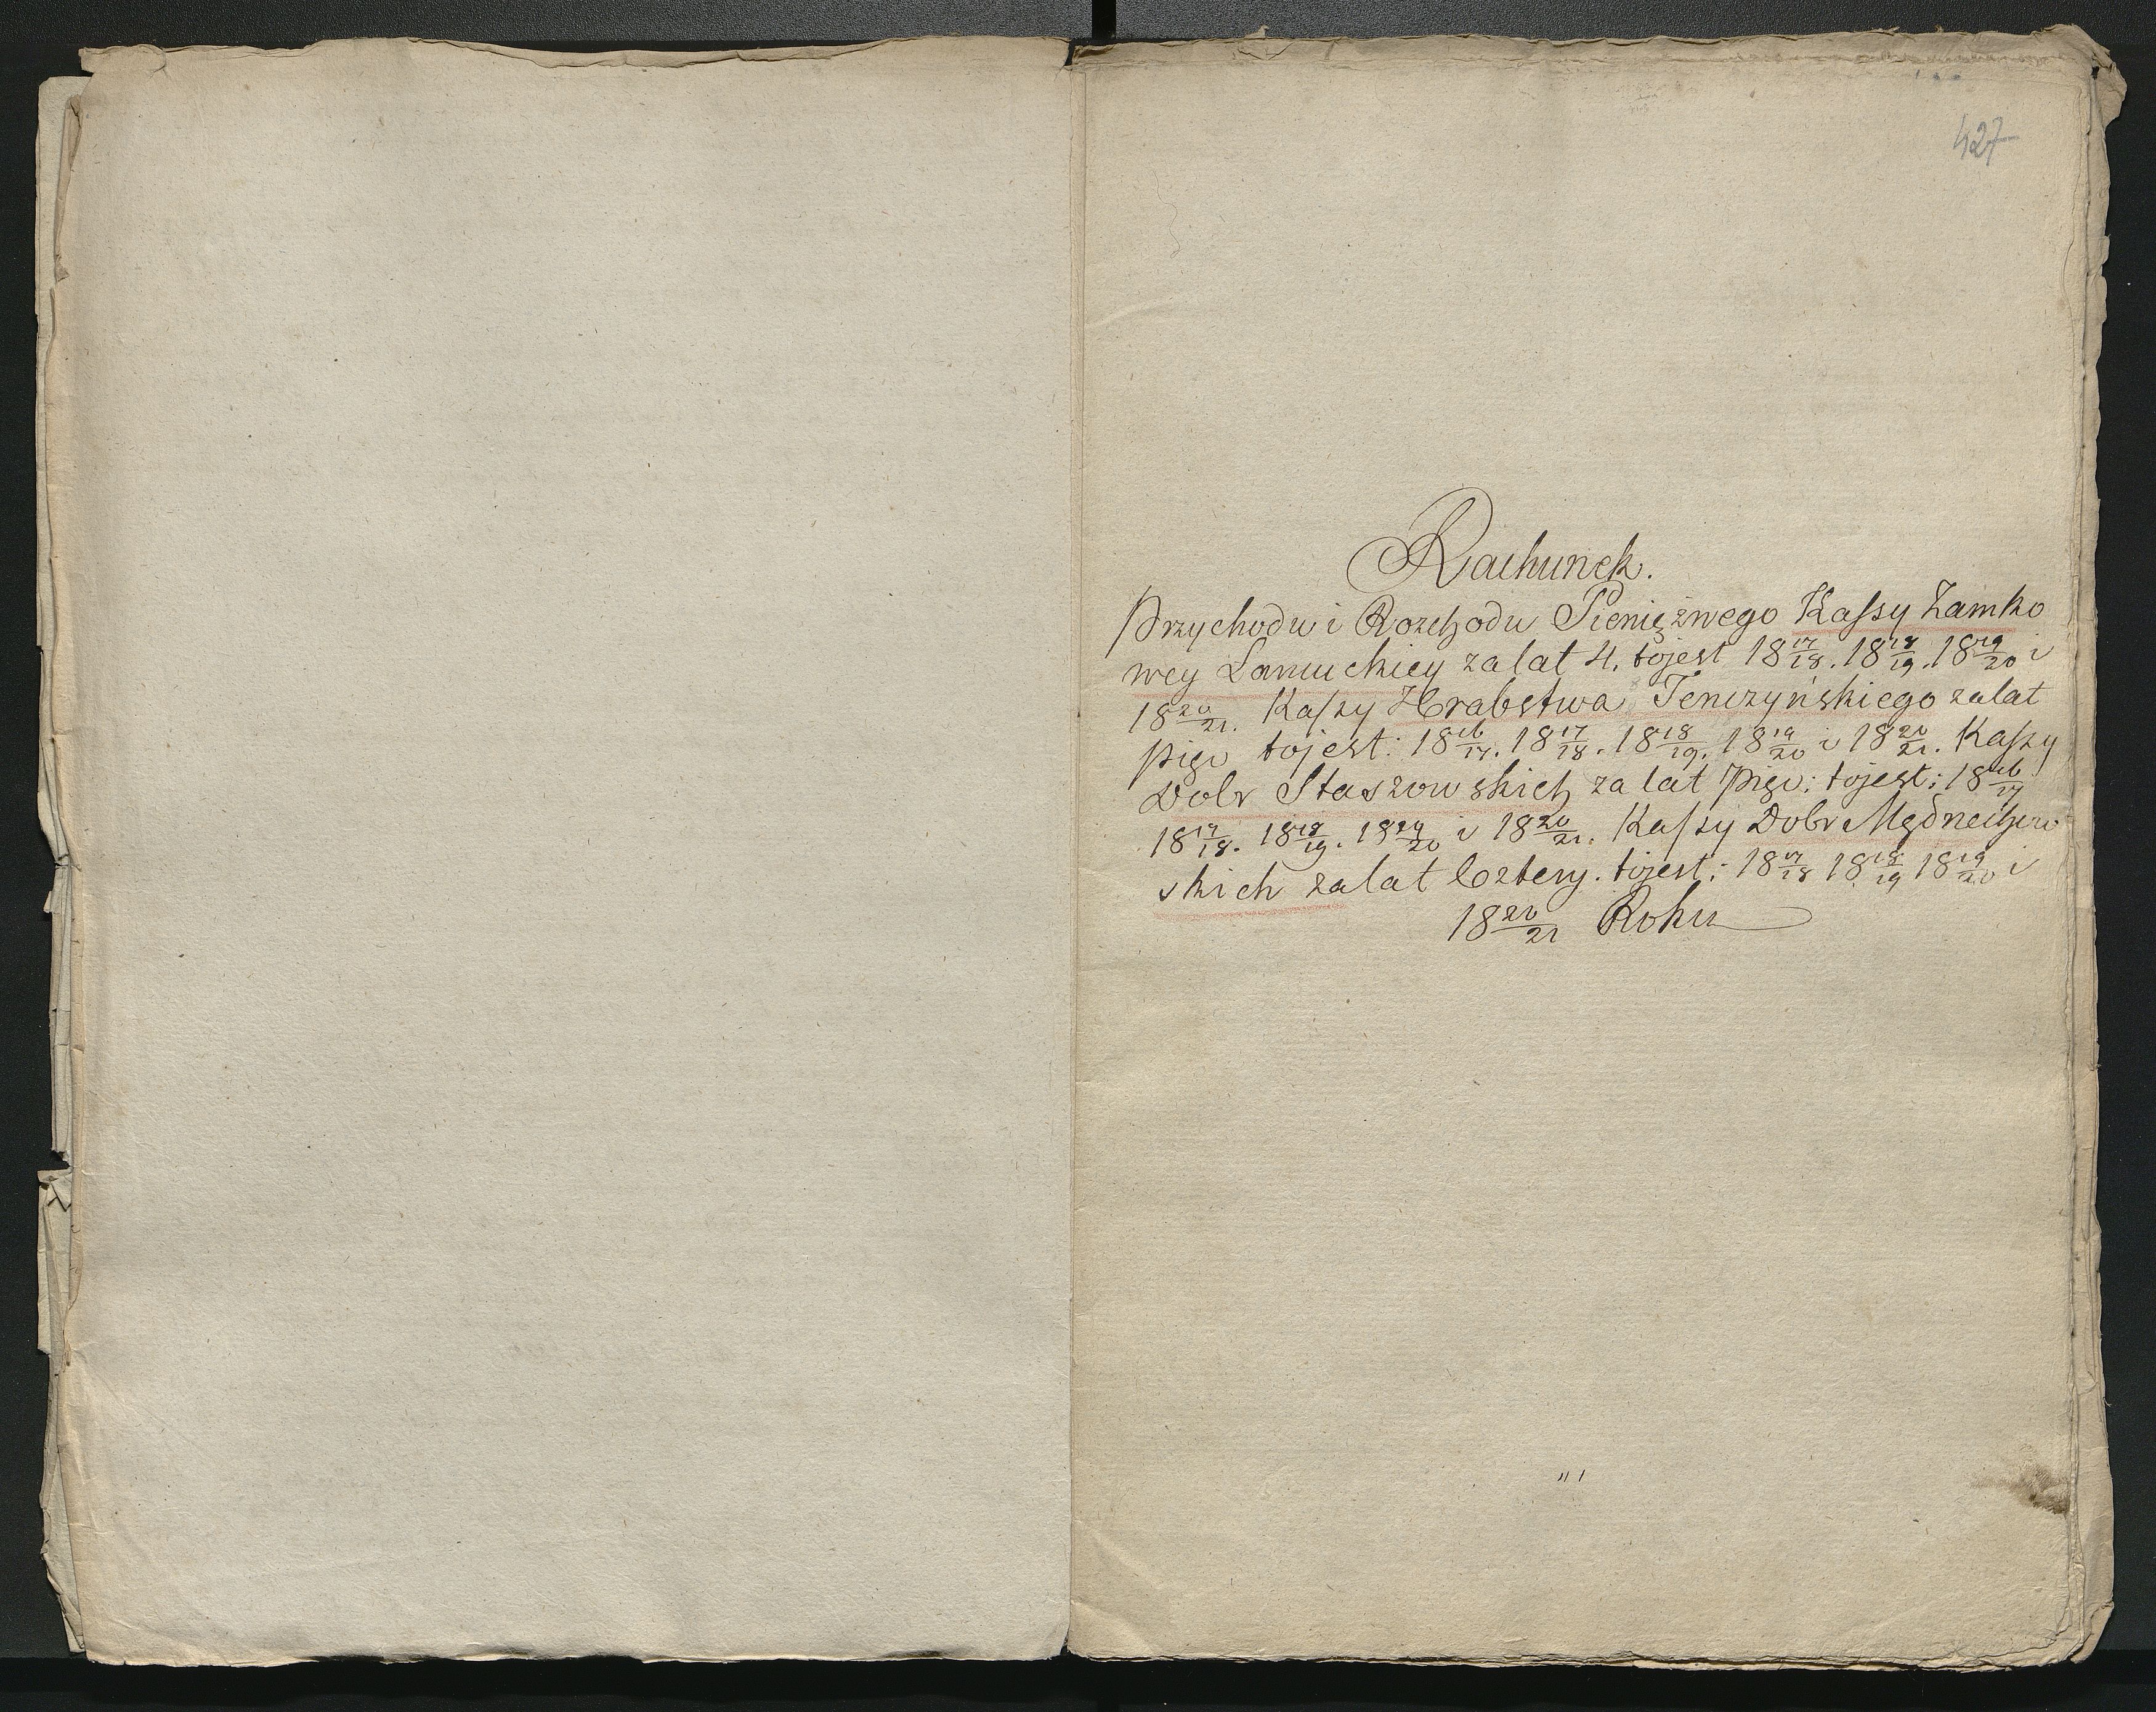 427
Rachunek.
Przychodu i Rozchodu Pieniężnego Kaſsy Zamko
wey Łancuckiey za lat 4. tojest 18 17/18. 18 18/19. 18 19/20 i
18 20/21. Kaſsy Hrabstwa Tenczyńskiego za lat
pięc tojest: 18 16/17. 18 17/18. 18 18/19. 18 19/20 i 18 20/21. Kaſsy
Dobr Staszowskich za lat pięc: tojest: 18 16/17
18 17/18. 18 18/19. 18 19/20 i 18 20/21. Kaſsy Dobr Mędrzechow
skich za lat Cztery. tojest: 18 17/18 18 18/19 18 19/20 i
18 20/21 Roku